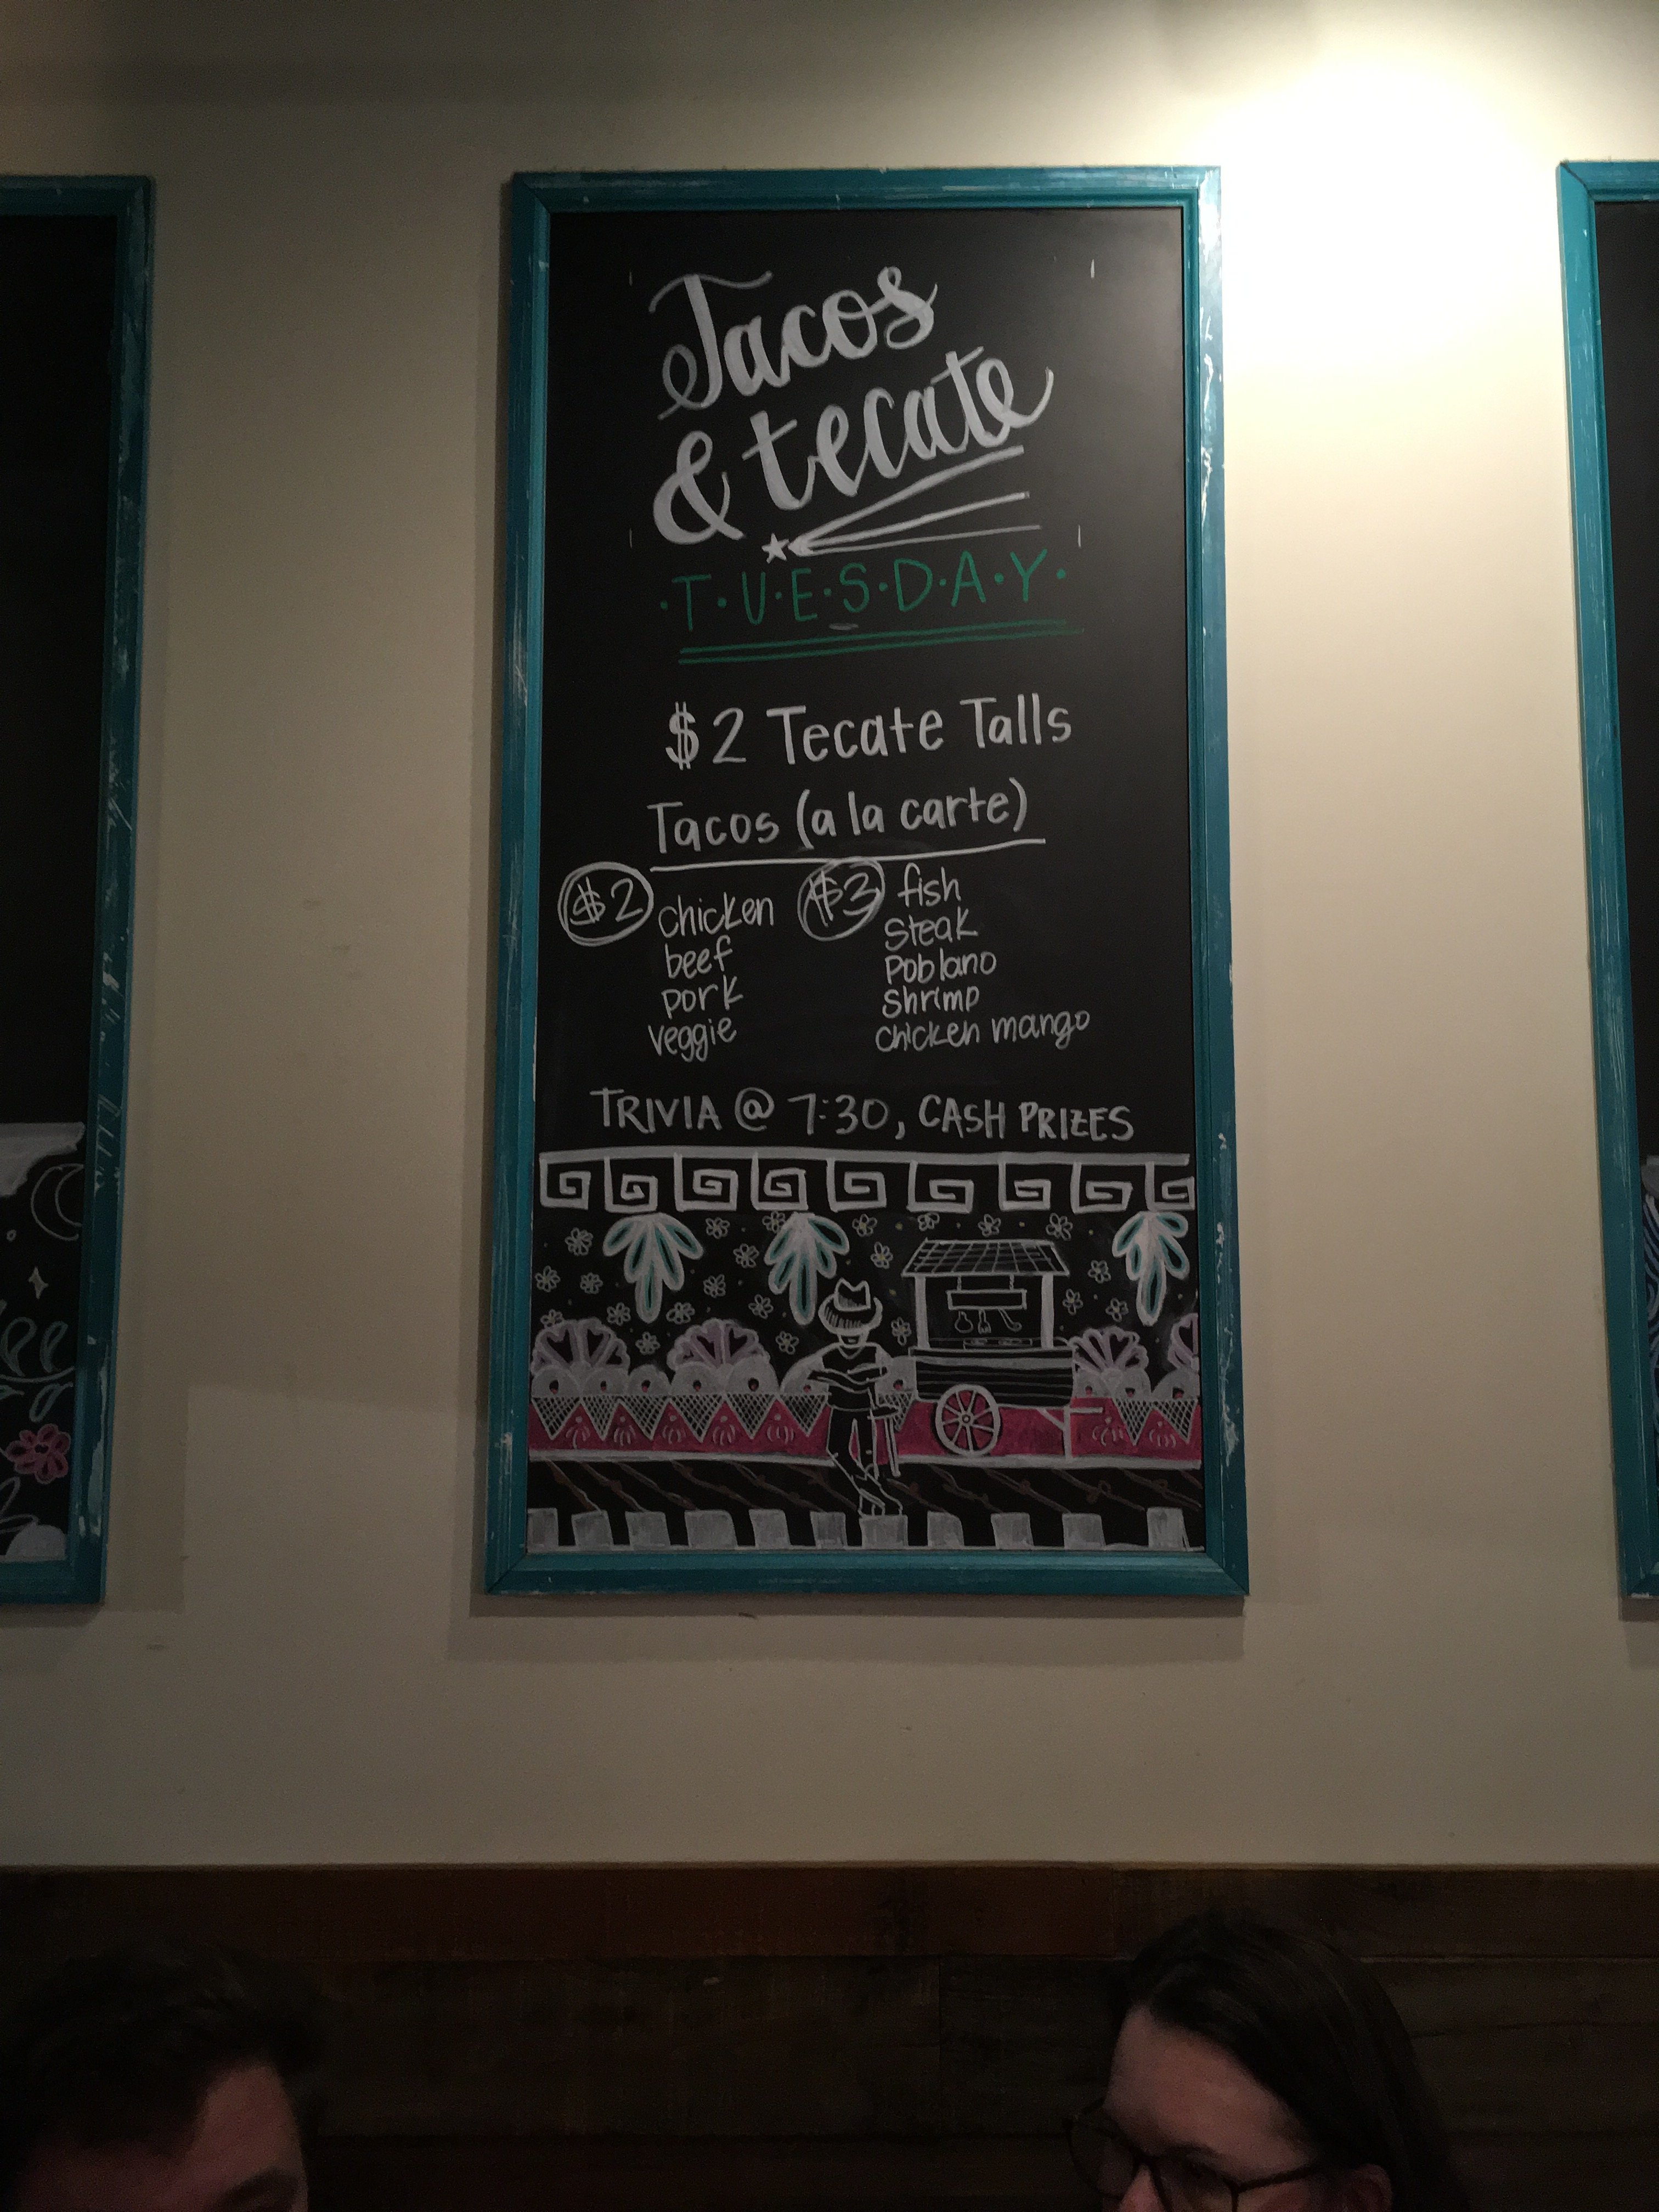 Tacos
& tecate
·T·U·E·S·D·A·Y·
$2 Tecate Talls
Tacos (a la carte)
$2 chicken
beef
pork
veggie
$3 fish
steak
poblano
shrimp
chicken mango
TRIVIA @ 7:30, CASH PRIZES